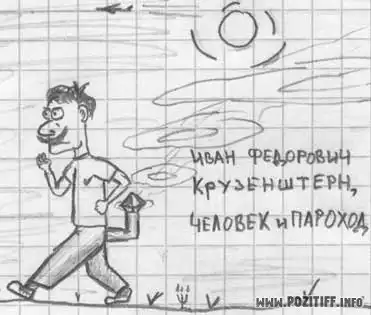 ИВАН ФЕДОРОВИЧ
КРУЗЕНШТЕРН,
ЧЕЛОВЕК И ПАРОХОД
WWW.POZITIFF.INFO